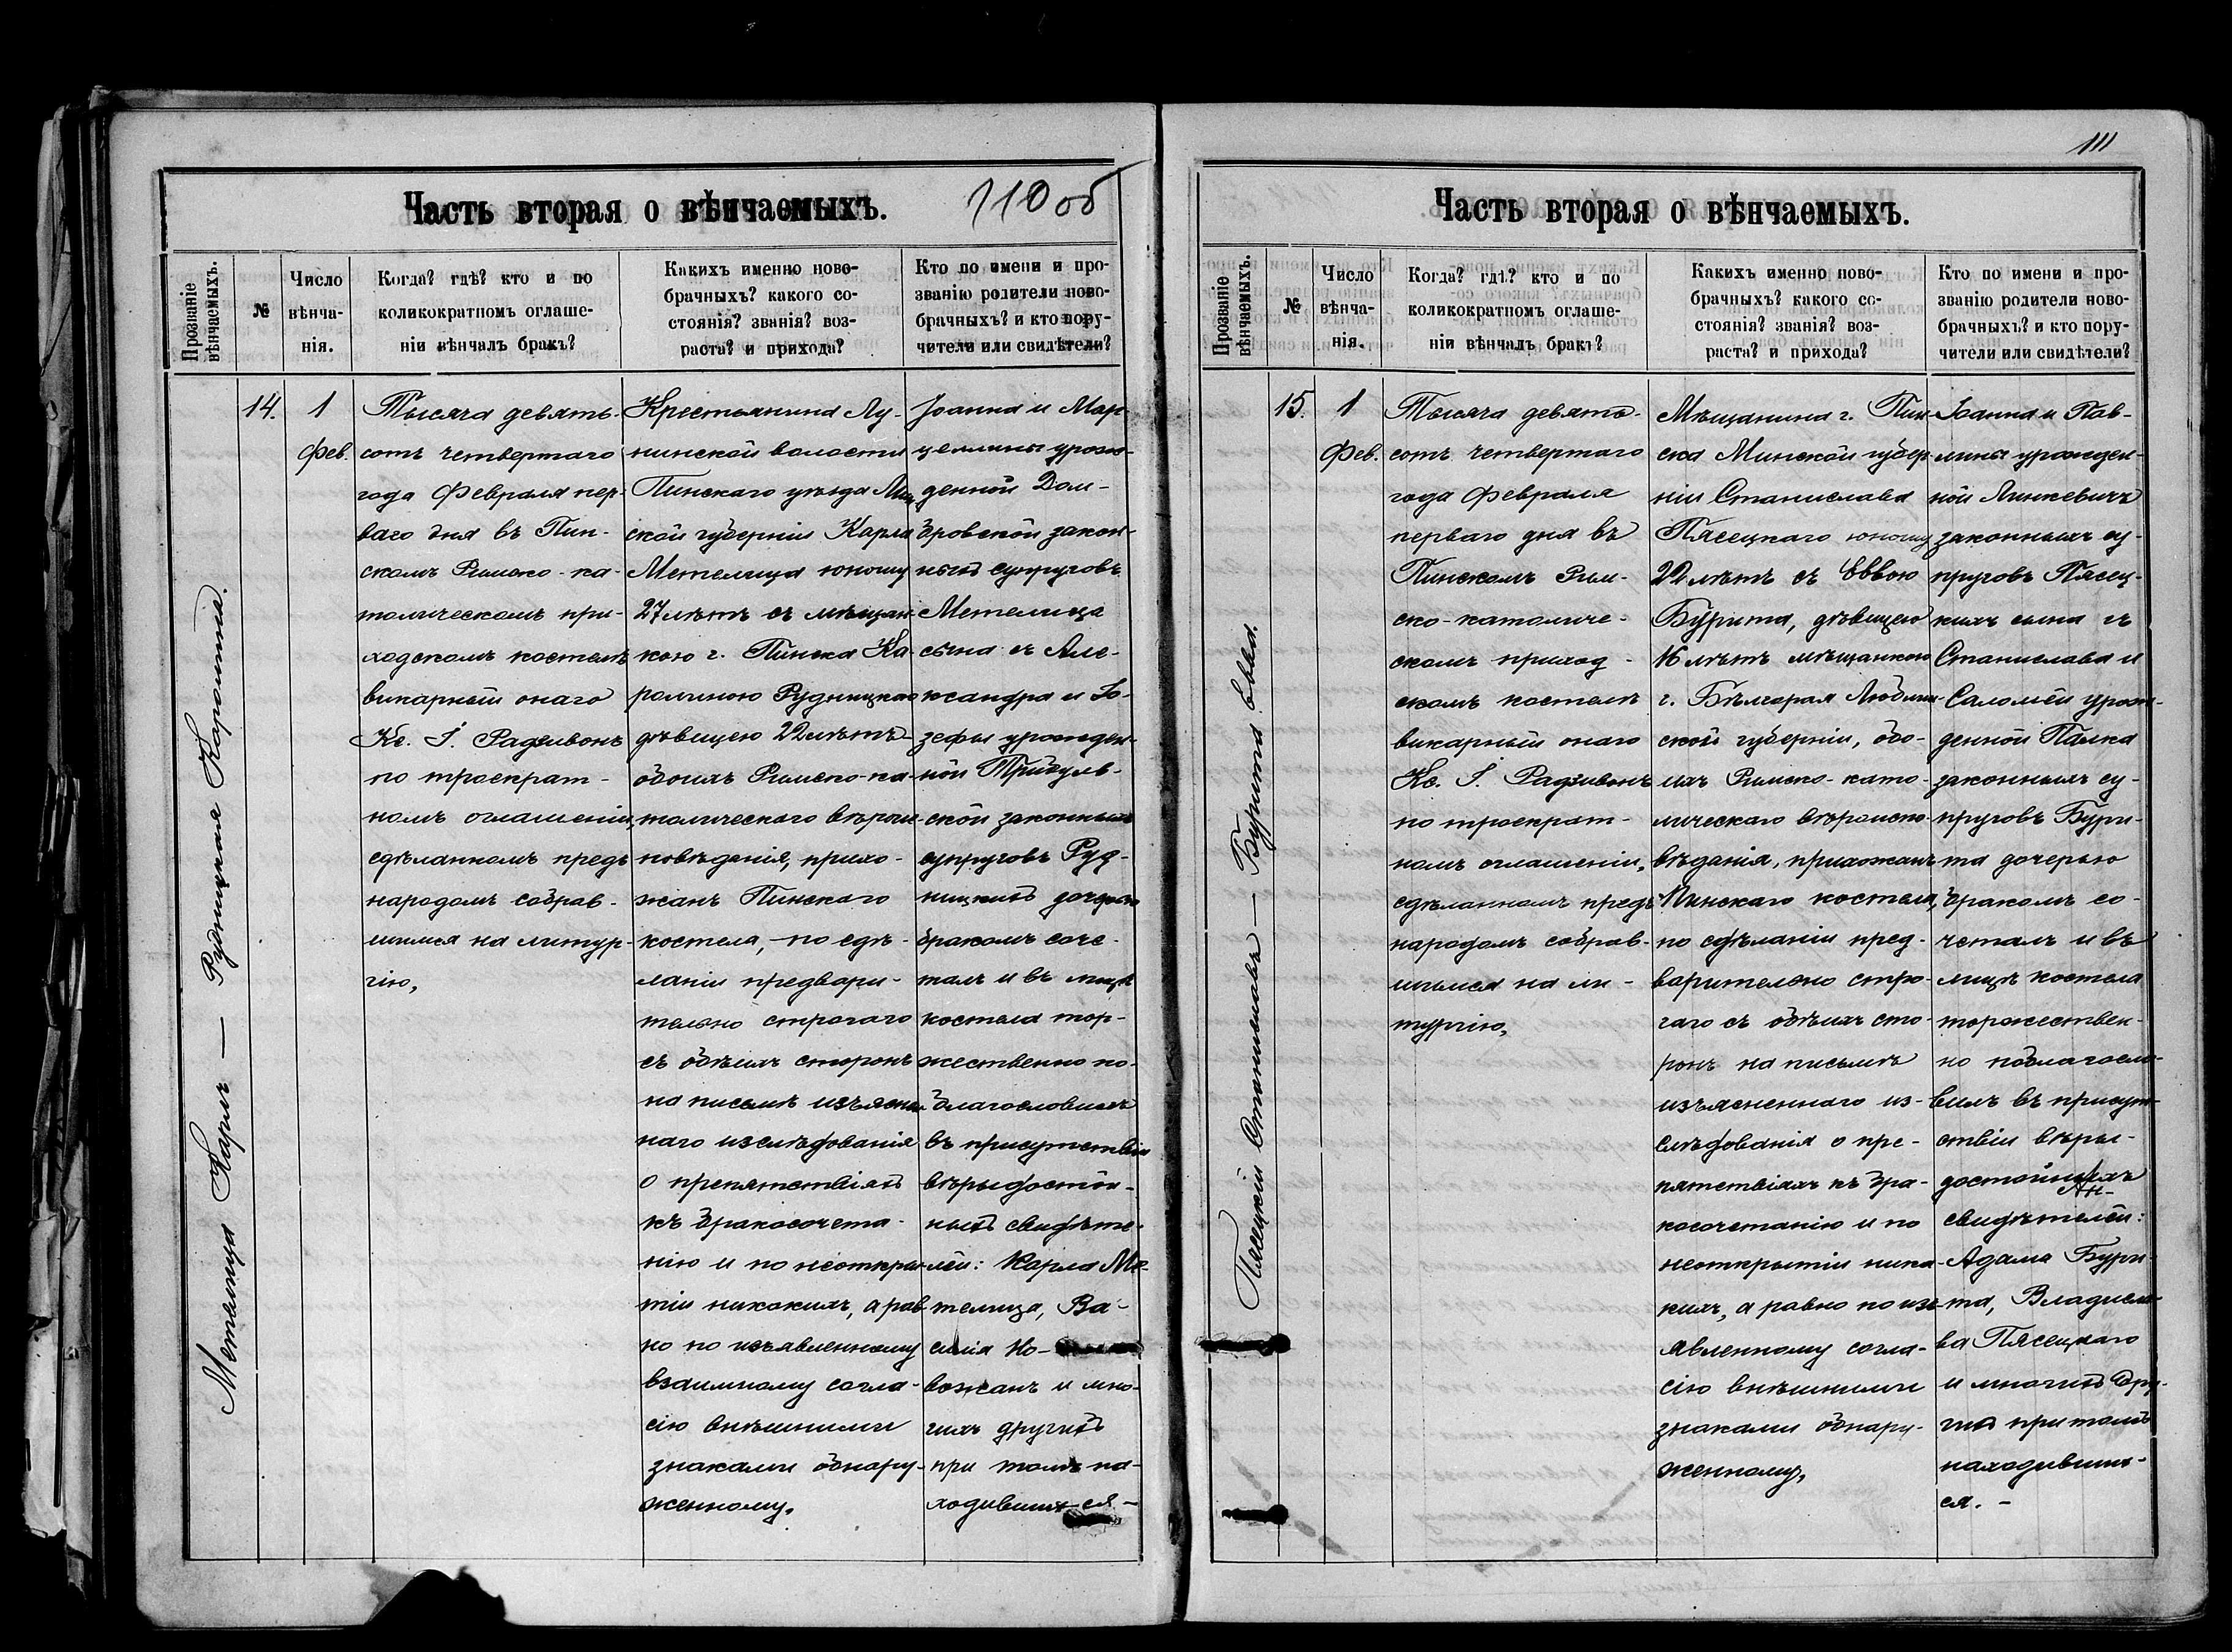 Часть вторая о вѣнчаемыхъ.
110 об
Прозваніе
вѣнчаемыхъ.
№
Число
вѣнча-
нія.
Когда? гдѣ? кто и по
коликократномъ оглаше-
ніи вѣнчалъ бракъ?
Какихъ именно ново-
брачныхъ? какого со-
стоянія? званія? воз-
раста? и прихода?
Кто по имени и про-
званію родители ново-
брачныхъ? и кто пору-
чители или свидѣтели?
Метелица Карлъ — Рудницкая Каролина.
14.
1
Фев.
Тысяча девять-
сотъ четвертаго
года Февраля пер-
ваго дня въ Пин-
скомъ Римско-ка-
толическомъ при-
ходскомъ костелѣ
викарный онаго
Кс. І. Радзивонъ
по троекрат-
номъ оглашеніи,
сдѣланномъ предъ
народомъ собрав-
шимся на литур-
гію,
Крестьянина Лу-
нинской волости
Пинскаго уѣзда Мин
ской губерніи Карла
Метелица юношу
27 лѣтъ съ мѣщан
кою г. Пинска Ка-
ролиною Рудницкою
дѣвицею 22 лѣтъ
обоихъ Римско-ка-
толическаго вѣроис
повѣданія, прихо-
жанъ Пинскаго
костела, по сдѣ-
ланіи предвари-
тельно строгаго
съ обѣихъ сторонъ
на письмѣ изъяснен
наго изслѣдованія
о препятствіяхъ
къ бракосочета-
нію и по неоткры-
тіи никакихъ, а рав
но по изъявленному
взаимному согла-
сію внѣшними
знаками обнару-
женному,
Іоанна и Мар-
целлины урож-
денной Дом-
бровской закон-
ныхъ супруговъ
Метелица
сына съ Але-
ксандра и Іо-
зефы урожден-
ной Тригуль-
ской законныхъ
супруговъ Руд-
ницкихъ дочерью
бракомъ соче-
талъ и въ лицѣ
костела тор-
жественно по-
благословилъ
въ присутствіи
вѣрыдостой-
ныхъ свидѣте-
лей: Карла Ме-
телица, Ва-
силія Но-
вожанъ и мно-
гихъ другихъ
при томъ на-
ходившихся —
111
Часть вторая о вѣнчаемыхъ.
Прозваніе
вѣнчаемыхъ.
№
Число
вѣнча-
нія.
Когда? гдѣ? кто и по
коликократномъ оглаше-
ніи вѣнчалъ бракъ?
Какихъ именно ново-
брачныхъ? какого со-
стоянія? званія? воз-
раста? и прихода?
Кто по имени и про-
званію родители ново-
брачныхъ? и кто пору-
чители или свидѣтели?
Пясецкій Станиславъ — Бурита Евва.
15.
1
Фев.
Тысяча девять-
сотъ четвертаго
года Февраля
перваго дня въ
Пинскомъ Рим-
ско-католиче-
скомъ приход-
скомъ костелѣ
викарный онаго
Кс. І. Радзивонъ
по троекрат-
номъ оглашеніи,
сдѣланномъ предъ
народомъ собрав-
шимся на ли-
тургію,
Мѣщанина г. Пин
ска Минской губер
ніи Станислава
Пясецкаго юношу
22 лѣтъ съ Еввою
Бурита, дѣвицею
16 лѣтъ мѣщанкою
г. Бѣлгорая Люблин
ской губерніи, обо-
ихъ Римско-като-
лическаго вѣроиспо-
вѣданія, прихожанъ
Пинскаго костела,
по сдѣланіи пред-
варительно стро-
гаго съ обѣихъ сто-
ронъ на письмѣ
изъясненнаго из-
слѣдованія о пре-
пятствіяхъ къ бра-
косочетанію и по
неоткрытіи ника-
кихъ, а равно по изъ-
явленному согла-
сію внѣшними
знаками обнару-
женному,
Іоанна и Пав-
лины урожден-
ной Линкевичъ
законныхъ су-
пруговъ Пясец-
кихъ сына съ
Станислава и
Саломеи урож-
денной Палка
законныхъ су-
пруговъ Бури-
та дочерью
бракомъ со-
четалъ и въ
лицѣ костела
торжествен-
но поблагосло-
вилъ въ присут-
ствіи вѣры-
достойныхъ
свидѣтелей:
Адама Бури-
та, Владисла-
ва Пясецкаго
и многихъ дру-
гихъ при томъ
находивших-
ся. —